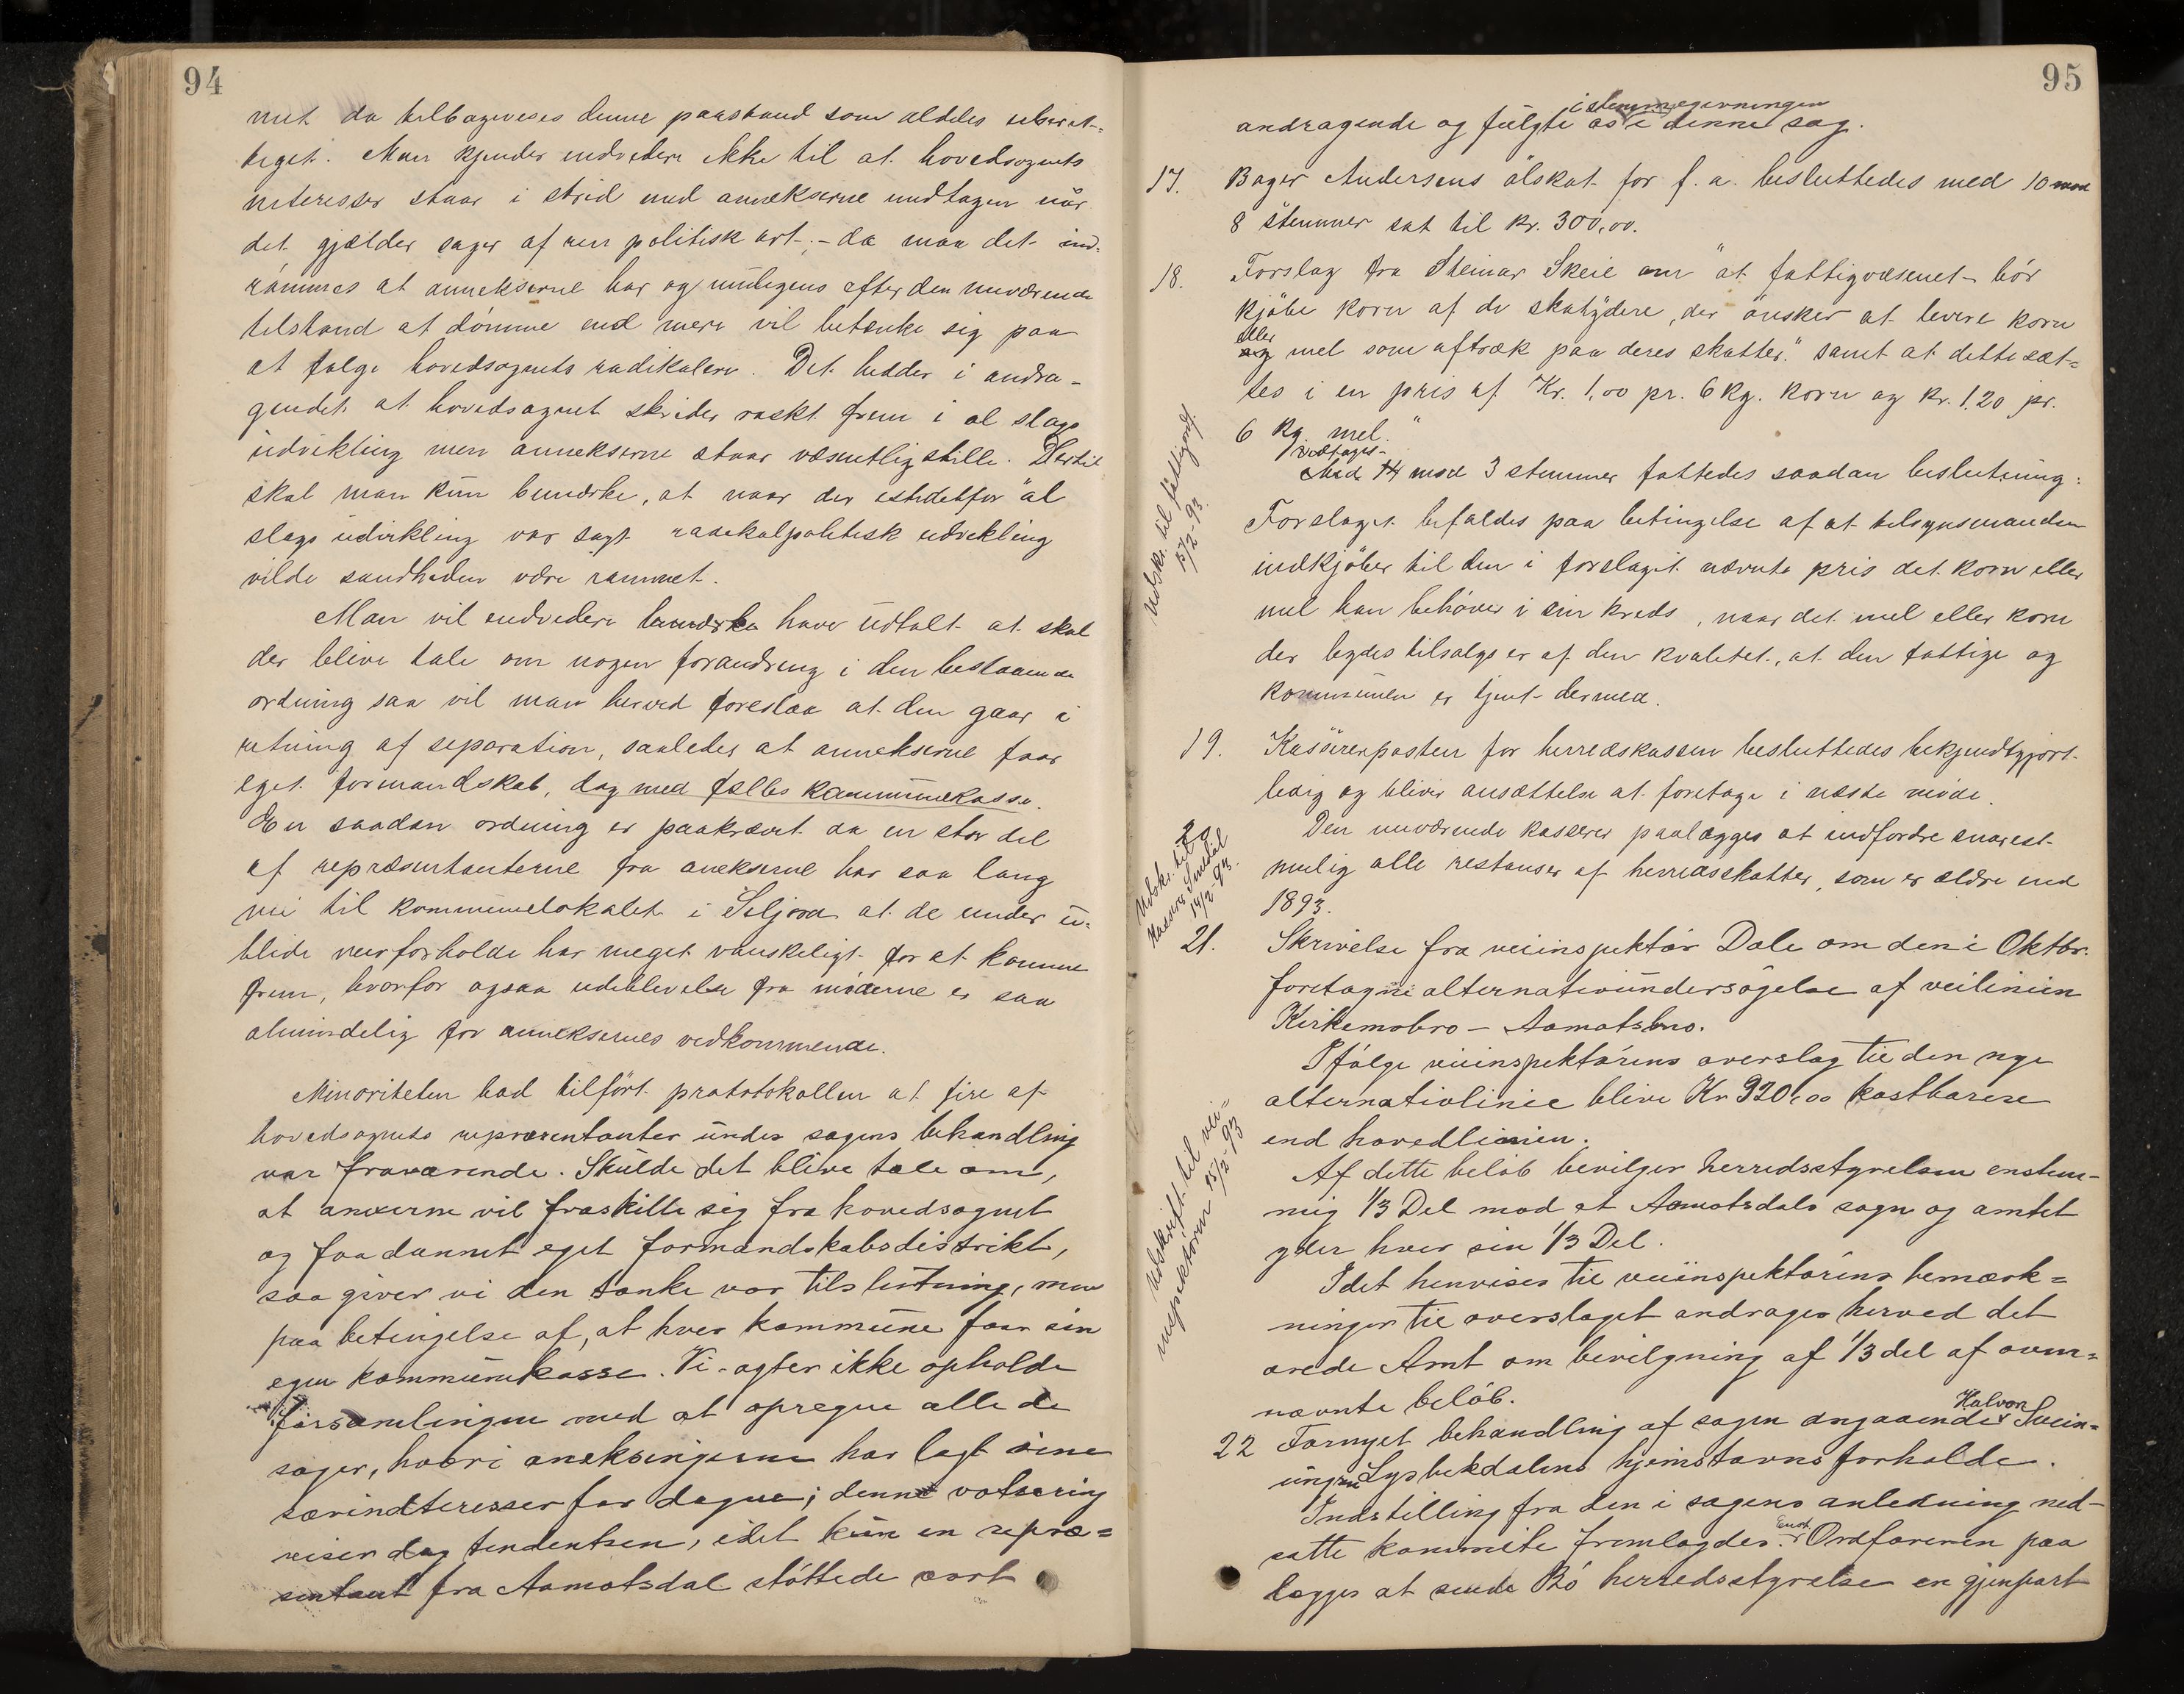 94
met da tilbagevises denne paastand som aldeles uberet-
tiget. Man kjender endvidere ikke til at hovedsognets
interesser staar i strid med annekserne undtagen når
det gjælder sager af ren politisk art; - da maa det ind-
rømmes at annekserne har og muligens efter den nuværende
tilstand at dømme end mere vil betænke sig paa
at følge hovedsognets radikalere. Det hedder i andra-
gendet at hovedsognet skrider raskt frem i al slags
udvikling men annekserne staar væsentlig stille. Hertil
skal man kun bemærke, at naar der istedetfor "al
slags udvikling var sagt radikalpolitisk udvikling
vilde sandheden være rammet.
Man vil endvidere bemærke have udtalt at skal
der blive tale om nogen forandring i den bestaaende
ordning saa vil man herved foreslaa at den gaar i
retning af separation, saaledes at annekserne faar
eget formandskab, dog med fælles kommunekasse.
En saadan ordning er paakrævet da en stor del
af repræsentanterne fra anekserne har saa lang
vei til kommunelokalet i Seljord at de under u-
blide veirforholde har meget vanskeligt for at komme
frem, hvorfor ogsaa udeblivelse fra møderne er saa
almindelig for anneksernes vedkommende.
Minoriteten bad tilført protokollen at fire af
hovedsognets repræsentanter under sagens behandling
var fraværende. Skulde det blive tale om,
at anexerne vil fraskille sig fra hovedsognet
og faa dannet eget formandskabsdistrikt,
saa giver vi den tanke vor tilslutning, men
paa betingelse af, at hver kommune faar sin
egen kommunekasse. Vi agter ikke opholde
forsamlingen med at opregne alle de
sager, hvori aneksingerne har lagt sine
særindteresser for dagen; denne votering
viser dog tendentsen, idet kun en repræ=
sentant fra Aamotsdal støttede vort
95
i stemmegivningen
andragende og fulgte os i denne sag.
17. Bager Andersens ölskat for f. a. besluttedes med 10 mod
8 stemmer sat til kr. 300,00.
18. Forslag fra Steinar Skeie om "at fattigvæsenet bör
kjöbe korn af de skatydere, der önsker at levere korn
eller
og mel som aftræk paa deres skatter." samt at dette sæt-
tes i en pris af Kr. 1,00 pr. 6 kg. korn og kr. 1,20 pr.
6 kg. mel."
vedtages
Med 14 mod 3 stemmer fattedes saadan beslutning:
Forslaget befaldes paa betingelse af at tilsynsmanden
indkjöber til den i forslaget nævnte pris det korn eller
mel han behöver i sin kreds, naar det mel eller korn
der bydes tilsalgs er af den kvalitet, at den fattige og
kommunen er tjent dermed.
Udskr. til fattigsnf.
15/2-93.
19. Kassererposten for herredskassen besluttedes bekjendtgjort
ledig og bliver ansættelse at foretage i næste møde.
20 Den nuværende kasserer paalægges at indfordre snarest
mulig alle restanser af herredsskatter, som er ældre end
1893.
Udskr. til
14/2-93.
21. Skrivelse fra veiinspektør Dale om den i Oktbr.
foretagne alternativundersøgelse af veilinien
Kirkemobro – Aamotsbro.
Ifølge veiinspektørens overslag til den nye
alternativlinie blive Kr 920,00 kostbarere
end hovedlinien.
Af dette beløb bevilger herredsstyrelsen enstem-
mig 1/3 Del mod at Aamotsdals sogn og amtet
yder hver sin 1/3 Del.
Idet henvises til veiinspektørens bemærk=
ninger til overslaget andrages herved det
ærede Amt om bevilgning af 1/3 del af oven=
nævnte beløb.
Udskrift til vei=
inspektøren 15/2-93
22 Fornyet behandling af sagen angaaende Halvor Svein-
ungsen Lysbekdalens hjemstavnsforholde.
Indstilling fra den i sagens anledning ned-
satte kommite fremlagdes. Enst. Ordføreren paa
lægges at sende Bø herredsstyrelse en gjenpart